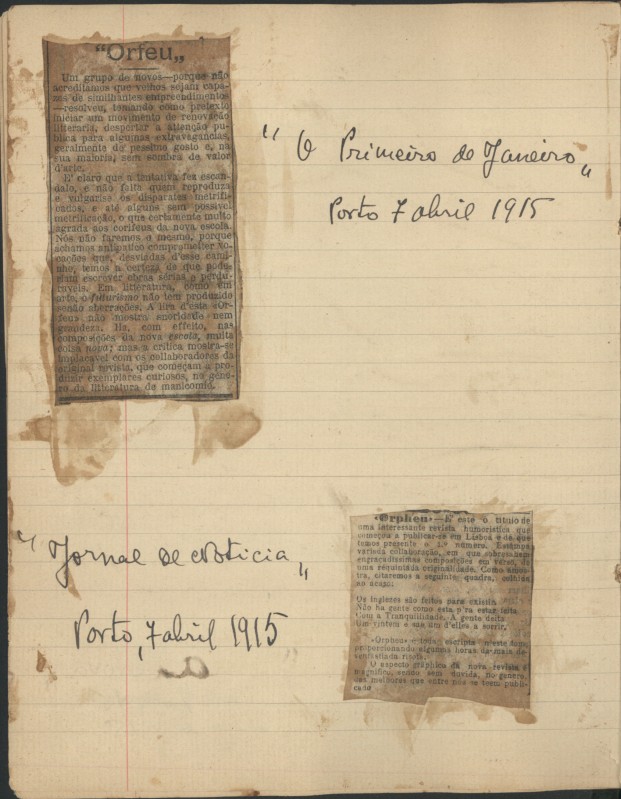 “Orfeu„
Um grupo de novos—porque não
acreditamos que velhos sejam capa-
zes de similhantes emprendimentos
—resolveu, tomando como pretexto
iniciar um movimento de renovação
litteraria, despertar a attenção pu-
blica para algumas extravagancias,
geralmente de pessimo gosto e, na
sua maioria, sem sombra de valor
d'arte.
E' claro que a tentativa fez escan-
dalo, e não falta quem reproduza
e vulgarise os disparates metrifi-
cados, e até alguns sem possivel
metrificação, o que certamente muito
agrada aos corifeus da nova escola.
Nós não faremos o mesmo, porque
achamos antipatico comprometter vo-
cações que, desviadas d'esse cami-
nho, temos a certeza de que pode-
riam escrever obras sérias e perdu-
raveis. Em litteratura, como em
arte, o futurismo não tem produzido
senão aberrações. A lira d'este «Or-
feu» não mostra sonoridade nem
grandeza. Ha, com effeito, nas
composições da nova escola, muita
coisa nova; mas a critica mostra-se
implacavel com os collaboradores da
original revista, que começam a pro-
duzir exemplares curiosos, no gene-
ro da litteratura de manicomio.
“ O Primeiro de Janeiro „
Porto 7 abril 1915
“ Jornal de Noticia „
Porto, 7 abril 1915
«Orpheu»—E' este o titulo de
uma interessante revista humoristica que
começou a publicar-se em Lisboa e de que
temos presente o 1.º numero. Estampa
variada collaboração, em que sobresahem
engraçadissimas composições em verso, de
uma requintada originalidade. Como amos-
tra, citaremos a seguinte quadra, colhida
ao acaso:
Os inglezes são feitos para existir.
Não ha gente como esta p'ra estar feita
Com a Tranquillidade. A gente deita
Um vintem e sae um d'elles a sorrir.
«Orpheu» é toda escripta n'este tom,
proporcionando algumas horas de mais de
O aspecto graphico da nova revista é
magnifico, sendo sem duvida, no genero,
das melhores que entre nós se teem publi-
cado